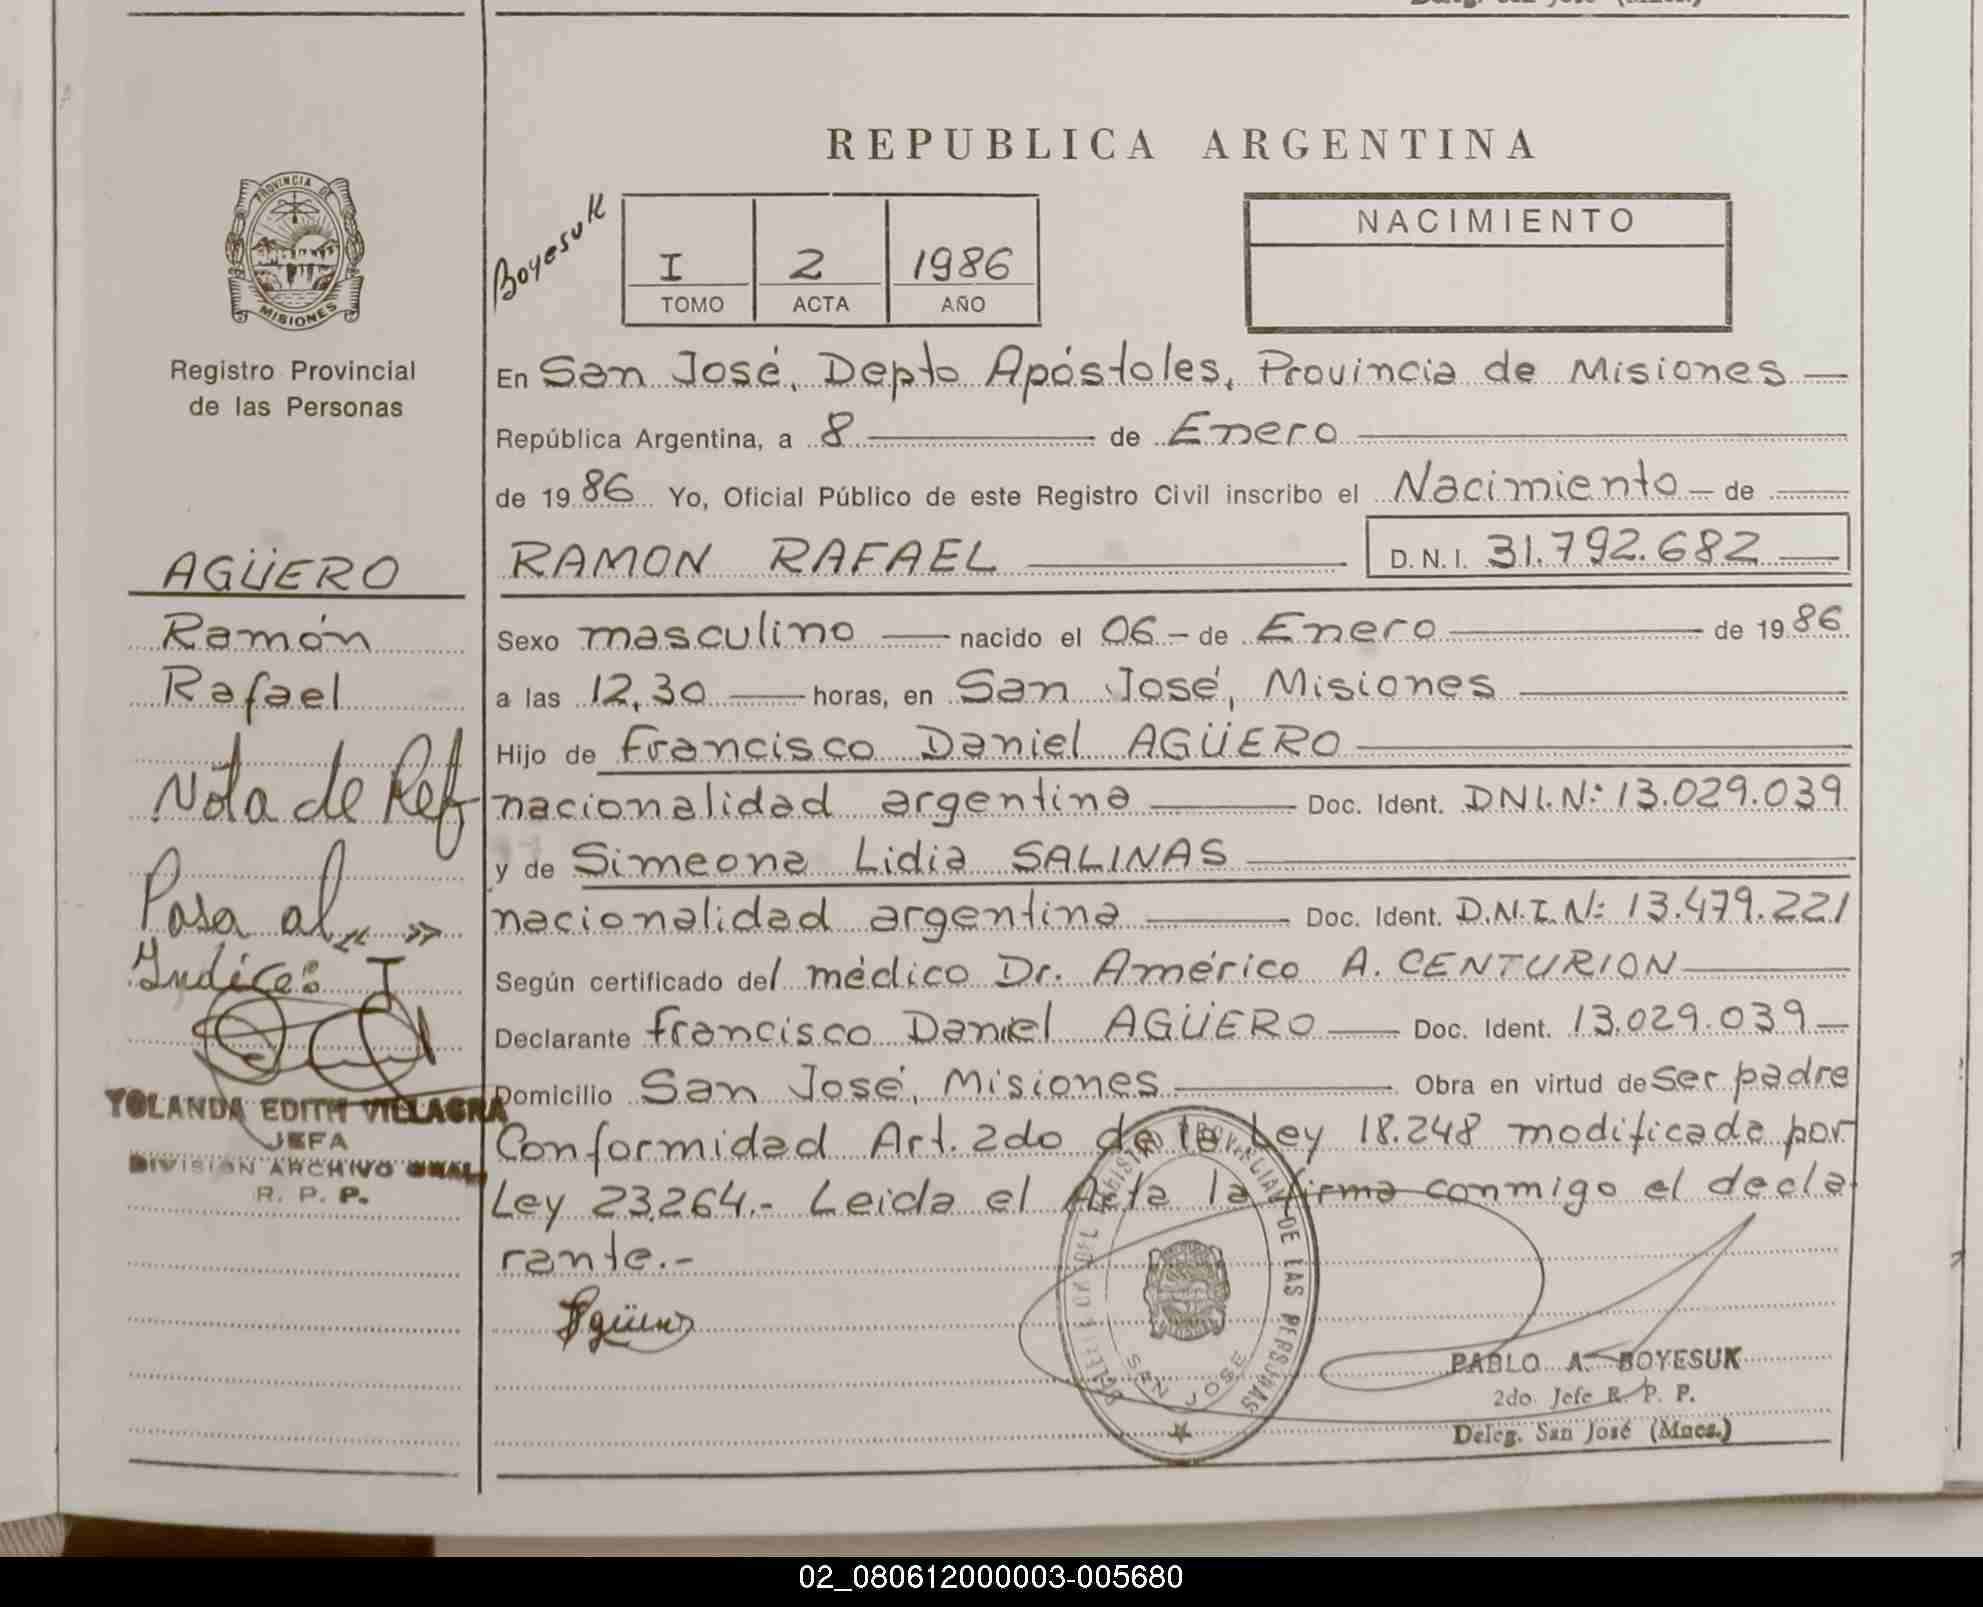 REPUBLICA ARGENTINA
PROVINCIA DE
MISIONES
Registro Provincial
de las Personas
Boyesuk
I 2 1986
TOMO ACTA AÑO
NACIMIENTO
En San José, Depto Apóstoles, Provincia de Misiones —
República Argentina, a 8 — de Enero —
de 1986 Yo, Oficial Público de este Registro Civil inscribo el Nacimiento — de —
RAMON RAFAEL — D.N.I. 31.792.682 —
Sexo masculino — nacido el 06 — de Enero — de 1986
a las 12,30 — horas, en San José, Misiones —
Hijo de Francisco Daniel AGÜERO —
nacionalidad argentina — Doc. Ident. DNI.N: 13.029.039
y de Simeona Lidia SALINAS —
nacionalidad argentina — Doc. Ident. D.N.I.N: 13.479.221
Según certificado del médico Dr. Américo A. CENTURION —
Declarante Francisco Daniel AGÜERO — Doc. Ident. 13.029.039 —
Domicilio San José, Misiones — Obra en virtud de ser padre
Conformidad Art. 2do de la Ley 18.248 modificada por
Ley 23.264.- Leida el Acta la firma conmigo el decla
rante.-
Agüero
AGÜERO
Ramón
Rafael
Nota de Ref
Pasa al " "
Indice: I
YOLANDA EDITH VILLAGRA
JEFA
DIVISION ARCHIVO GRAL
R. P. P.
REGISTRO PROVINCIAL DE LAS PERSONAS
SAN JOSE
PABLO A. BOYESUK
2do. Jefe R. P. P.
Deleg. San José (Mnes.)
02_080612000003-005680